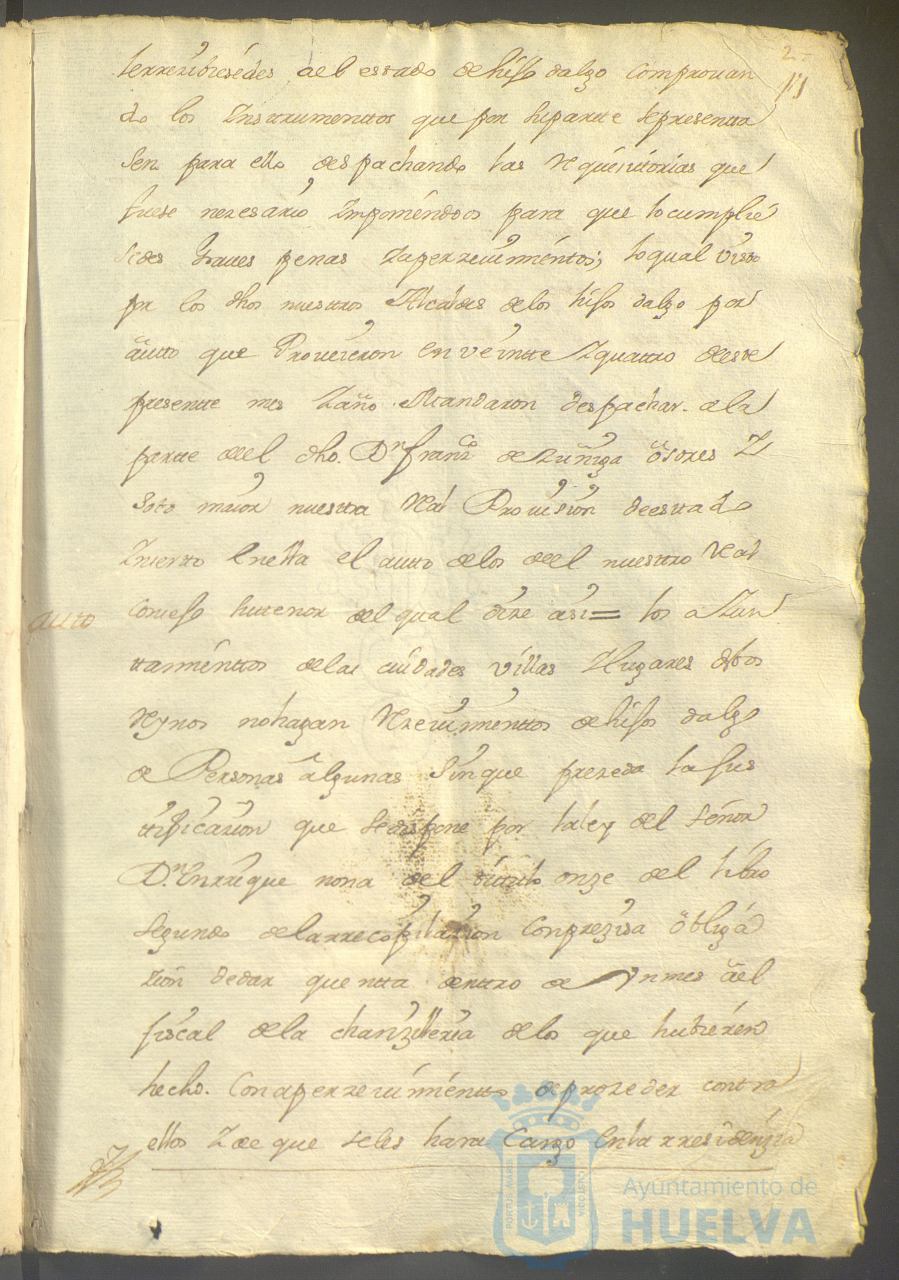 2
11
terrezibiesedes ael estado de hijo dalgo comprouan
do los Instrumenttos que por su partte se presentta
sen para ello despachando las Requisitorias que
fuese nezesario Imponiendoos para que lo cumplie
sedes graues penas Zaperzeuimientos; lo qual visto
por los dhos nuestros Alcaldes delos hijos dalgo por
autto que Proueieron en veintte Zquattro deeste
presentte mes Zaño Mandaron despachar a la
partte deel dho. Dn franco de Zuñiga osores Z
soto maior nuestra Real Prouision deesta do
Inserto Enella el autto delos deel nuestro Real
Consejo hutenor del qual dize asi = los a Zun
autto
ttamienttos delas ciudades villas Zlugares destos
Reynos no hagan Rezeuimienttos de hijos dalgo
de Personas algunas sin que prezeda la jus
ttificazion que se dispone por la ley del señor
Dn. Enrrique nona del titulo onze del libro
segundo delarrecopilazion Con prezisa obliga
zion de dar quentta dentro de Vn mes ael
fiscal de la chanzilleria delos que hubieren
hecho. Con aperzeuimiento de prozeder contra
ellos Z de que se les hara Cargo En la rresidenzia
PORTUS MARIS
Ayuntamiento de
HUELVA